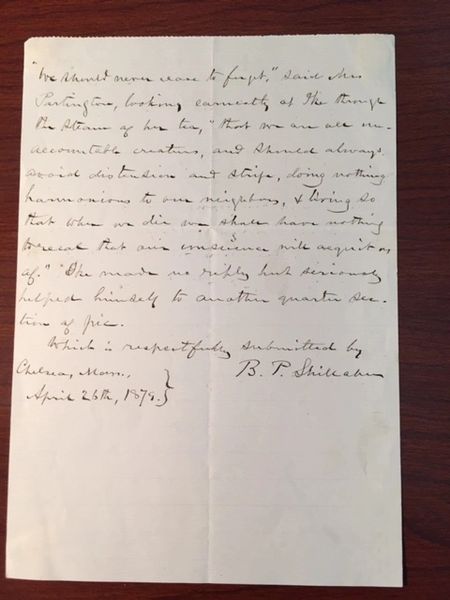 "We should never cease to forget," said Mrs
Partington, looking earnestly at Ike through
the steam of her tea, "that we are all un-
accountable creatures, and should always
avoid distension and strife, doing nothing
harmonious to our neighbors, & living so
that when we die we shall have nothing
to recal that our conscience will acquit us
of." Ike made no reply but seriously
helped himself to another quarter sec-
tion of pie.
Which is respectfully submitted by
B. P. Shillaber
Chelsea, Mass.,
April 26th, 1879.